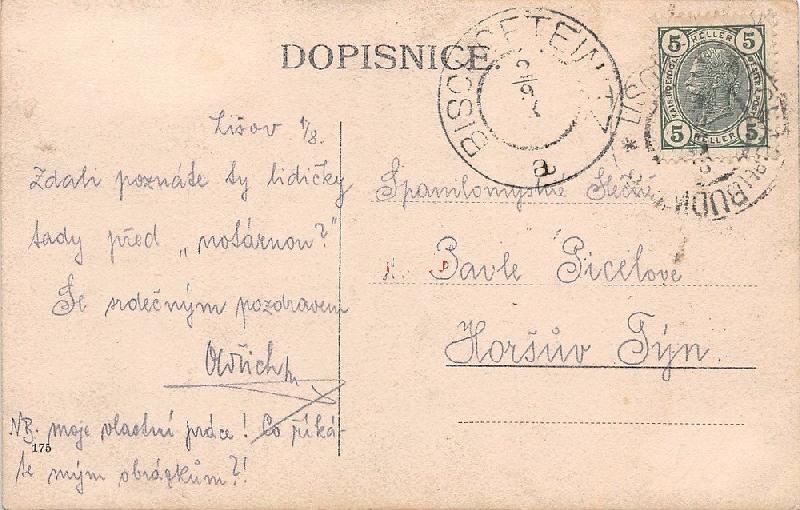 DOPISNICE.
BISCHOFTEINITZ
a
5 HELLER 5
5 HELLER 5
Lišov 1/8.
Zdali poznáte ty lidičky
tady před „notárnou?"
Se srdečným pozdravem
Oldřich
NB. moje vlastní práce! Co říká-
te mým obrázkům?!
175
Spanilomyslné Slečně
Pavle Picelove
Horšův Týn.